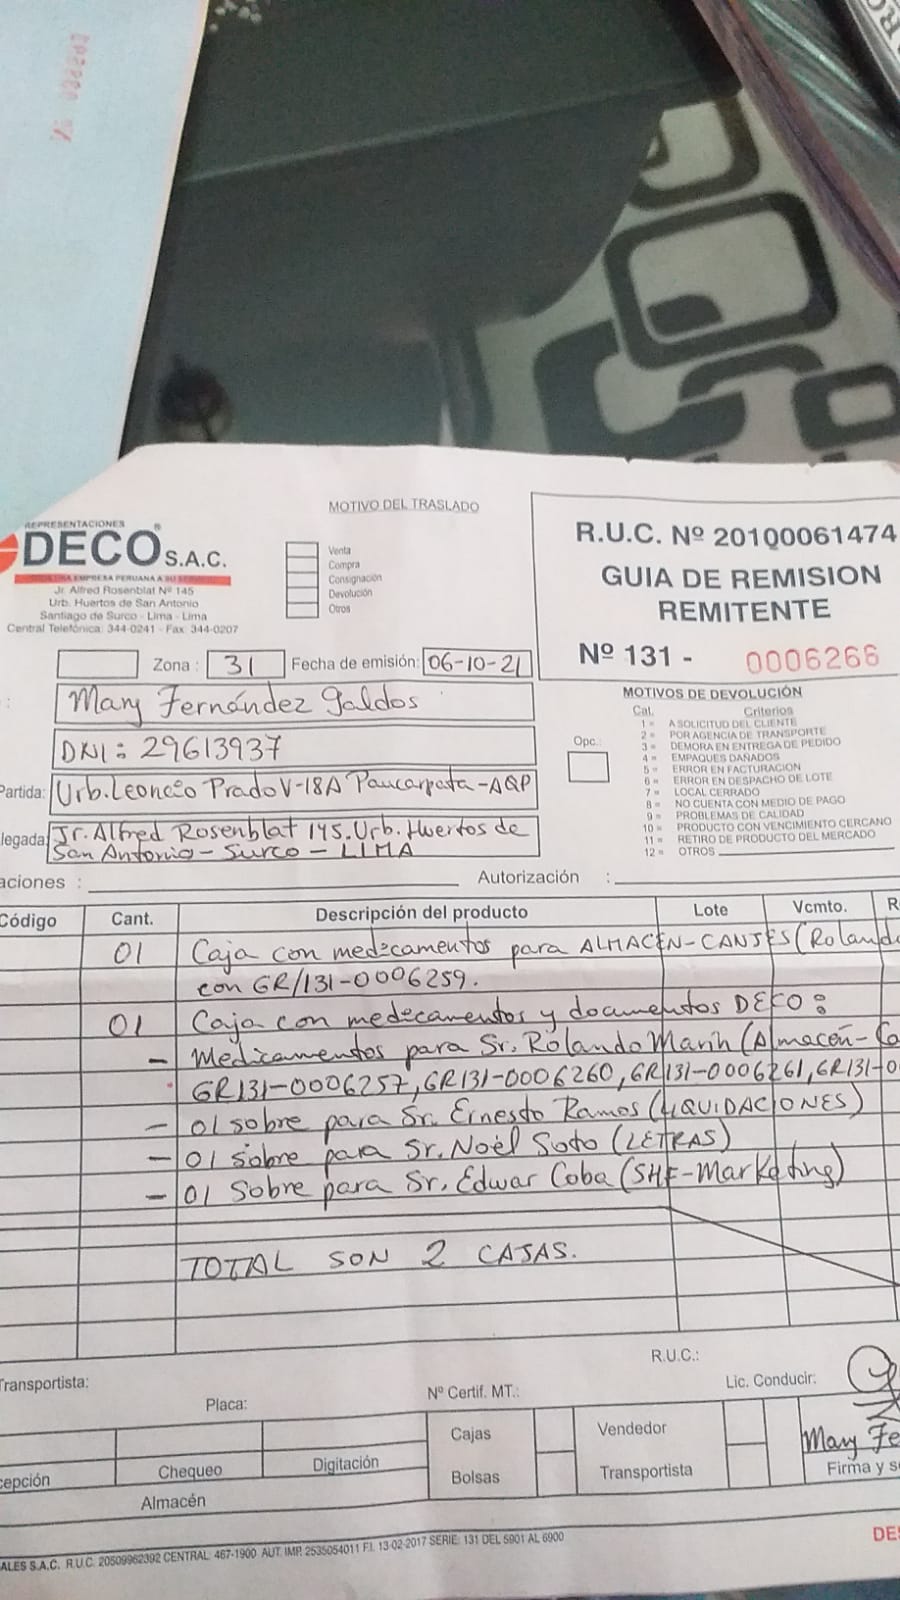 REPRESENTACIONES
DECO S.A.C.
Jr. Alfred Rosenblat Nº 145
Urb. Huertos de San Antonio
Santiago de Surco - Lima - Lima
Central Telefónica: 344-0241 - Fax: 344-0207
MOTIVO DEL TRASLADO
Venta
Compra
Consignación
Devolución
Otros
R.U.C. Nº 20100061474
GUIA DE REMISION
REMITENTE
Nº 131 - 0006266
Zona : 31 Fecha de emisión: 06-10-21
Mary Fernández Galdos
DNI: 29613937
Partida: Urb. Leoncio Prado V-18A Paucarpata-AQP
legada: Jr. Alfred Rosenblat 145. Urb. Huertos de
San Antonio - Surco - LIMA
MOTIVOS DE DEVOLUCIÓN
Cat. Criterios
1 = A SOLICITUD DEL CLIENTE
2 = POR AGENCIA DE TRANSPORTE
3 = DEMORA EN ENTREGA DE PEDIDO
4 = EMPAQUES DAÑADOS
5 = ERROR EN FACTURACION
6 = ERROR EN DESPACHO DE LOTE
7 = LOCAL CERRADO
8 = NO CUENTA CON MEDIO DE PAGO
9 = PROBLEMAS DE CALIDAD
10 = PRODUCTO CON VENCIMIENTO CERCANO
11 = RETIRO DE PRODUCTO DEL MERCADO
12 = OTROS
Opc.:
aciones : Autorización :
Código Cant. Descripción del producto Lote Vcmto. R
01 Caja con medicamentos para ALMACÉN-CANJES (Rolando
con GR/131-0006259.
01 Caja con medicamentos y documentos DECO:
- Medicamentos para Sr. Rolando Marin (Almacén-Ca
GR131-0006257, GR131-0006260, GR131-0006261, GR131-0
- 01 sobre para Sr. Ernesto Ramos (LIQUIDACIONES)
- 01 sobre para Sr. Noèl Soto (LETRAS)
- 01 Sobre para Sr. Edwar Coba (SHF-Marketing)
TOTAL SON 2 CAJAS.
R.U.C.:
Transportista:
Placa: Nº Certif. MT.: Lic. Conducir:
Cajas Vendedor
Mary Fe
cepción Chequeo Digitación Bolsas Transportista Firma y s
Almacén
ALES S.A.C. R.U.C. 20509962392 CENTRAL: 467-1900 AUT. IMP. 2535054011 F.I. 13-02-2017 SERIE: 131 DEL 5901 AL 6900
DES